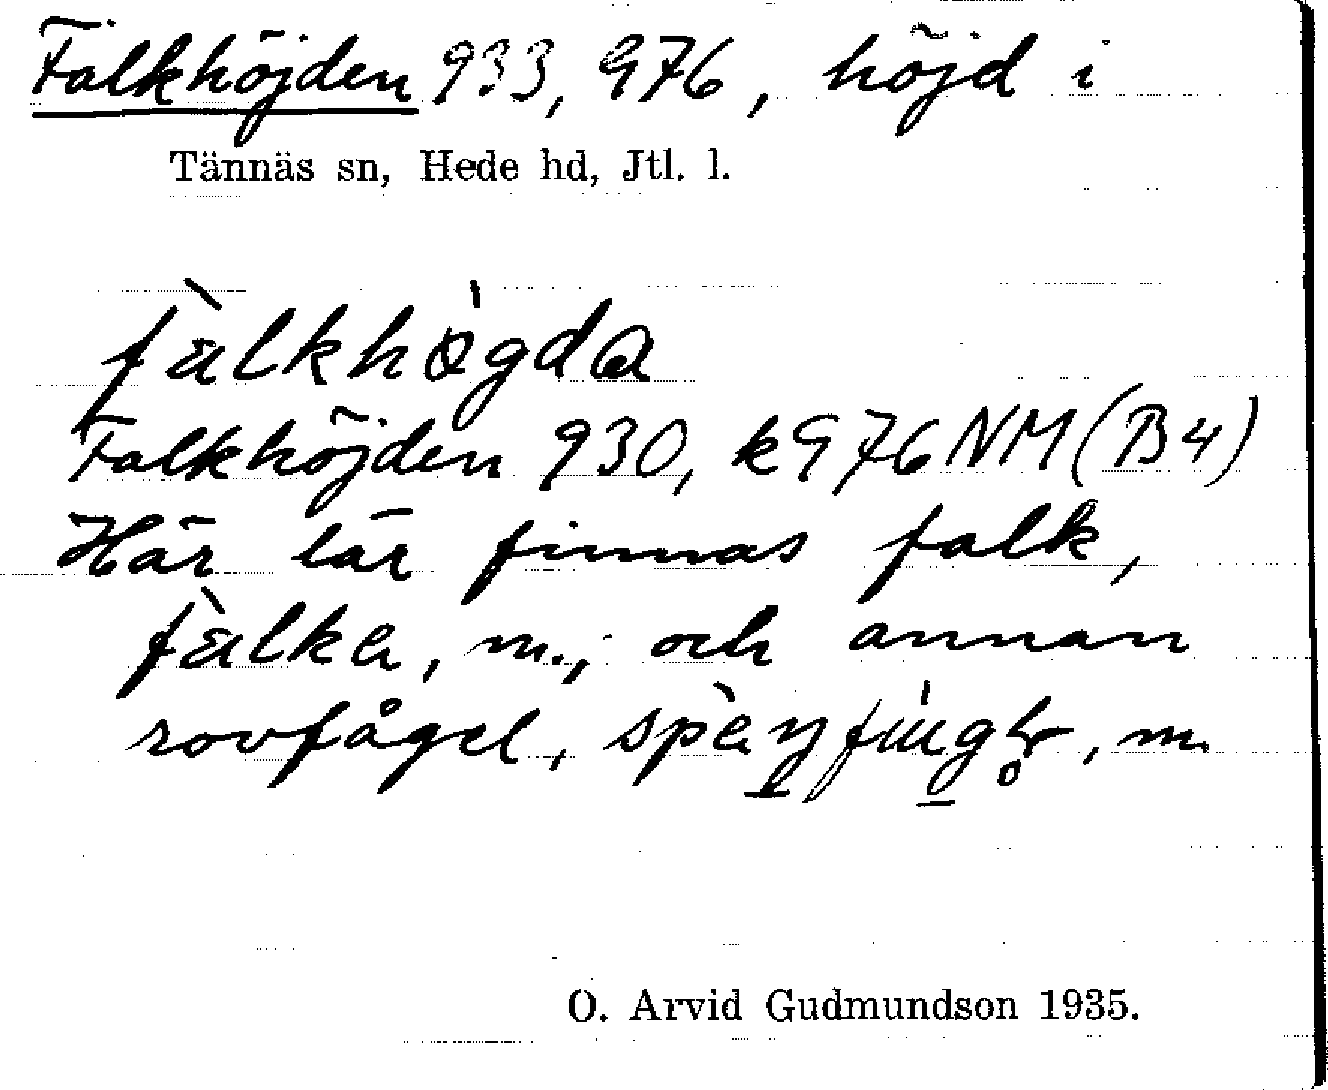 Falkhöjden 933, 976, höjd i
Tännäs sn, Hede hd, Jtl. l.
fàlkhøgda
Falkhöjden 930, k976NM(B4)
Här lär finnas falk,
fàlka, m., och annan
rovfågel, m.
O. Arvid Gudmundson 1935.